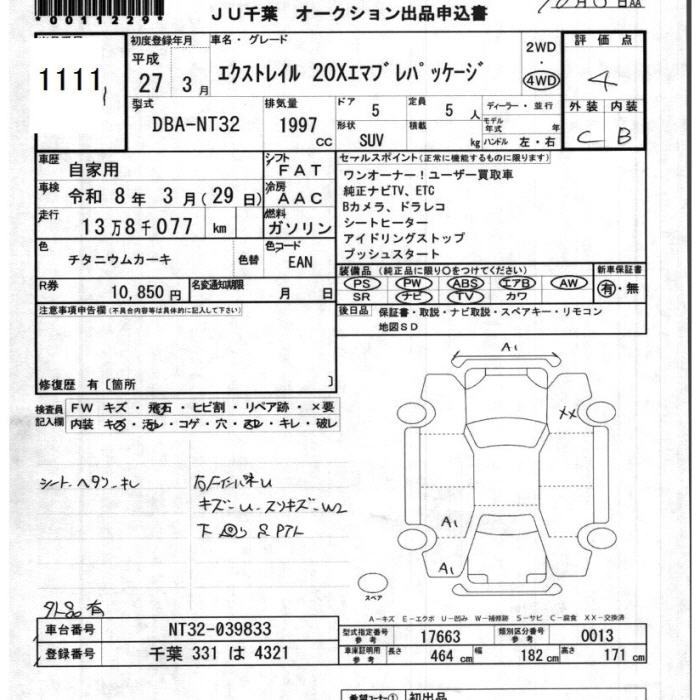 *0011229*
JU千葉 オークション出品申込書
1111
初度登録年月
平成
27 3 月
車名・グレード
エクストレイル 20Xエマブレパッケージ
2WD
・
4WD
評価点
4
外装 内装
C B
型式
DBA-NT32
排気量
1997 cc
ドア 5
定員 5 人
形状 SUV
積載 kg
ディーラー・並行
モデル年式 年
ハンドル 左・右
車歴 自家用
シフト FAT
車検 令和 8年 3月(29日)
冷房 AAC
走行 13万8千077 km
燃料 ガソリン
色 チタニウムカーキ 色替
色コード EAN
R券 10,850円
名変通知期限 月 日
セールスポイント(正常に機能するものに限ります)
ワンオーナー!ユーザー買取車
純正ナビTV、ETC
Bカメラ、ドラレコ
シートヒーター
アイドリングストップ
プッシュスタート
装備品(純正品に限り○をつけてください)
PS PW ABS エアB AW
SR ナビ TV カワ
新車保証書
有・無
後日品 保証書・取説・ナビ取説・スペアキー・リモコン
地図SD
注意事項申告欄(不具合内容等は具体的に記入して下さい)
修復歴 有〔箇所 〕
検査員
記入欄
FW キズ・飛石・ヒビ割・リペア跡・×要
内装 キズ・汚レ・コゲ・穴・スレ・キレ・破レ
シートヘタリ
キズ
A1
XX
A1
A1
スペア
A-キズ E-エクボ U-凹み W-補修跡 S-サビ C-腐食 XX-交換済
車台番号 NT32-039833
登録番号 千葉 331 は 4321
型式指定番号
参考
17663
類別区分番号
参考
0013
車庫証明用
参考
長さ 464 cm 幅 182 cm 高さ 171 cm
希望コーナー① 初出品